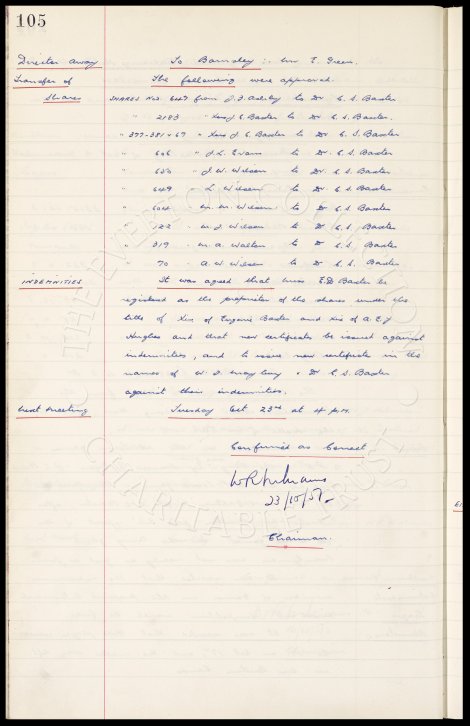 105
Director away To Barnsley :- Mr E. Green.
Transfer of The following were approved.
Shares SHARES Nos 647 from J. J. Astley to Dr C. S. Baxter
" 2183 " C. Baxter to Dr C. S. Baxter.
" 377-381 + 67 " C. Baxter to Dr C. S. Baxter
" 606 " J. L. Evans to Dr. C. S. Baxter
" 653 " J. W. Wilson to Dr C. S. Baxter
" 649 " L. Wilson to Dr C. S. Baxter
" 604 " M. M. Wilson to Dr C. S. Baxter
" 122 " M. J. Wilson to Dr C. S. Baxter
" 319 " M. A. Walton to Dr C. S. Baxter
" 70 " A. W. Wilson to Dr C. S. Baxter
INDEMNITIES It was agreed that Miss E.D. Baxter be
registered as the proprietor of the shares under the
title of of Eugenie Baxter and of A. E. J
Hughes and that new certificates be issued against
indemnities, and to issue new certificates in the
names of W. J. + Dr C S. Baxter
against their indemnities.
Next Meeting Tuesday Oct 23rd at 4 P.M.
Confirmed as Correct
23/10/51
Chairman.
THE CHARITABLE TRUST